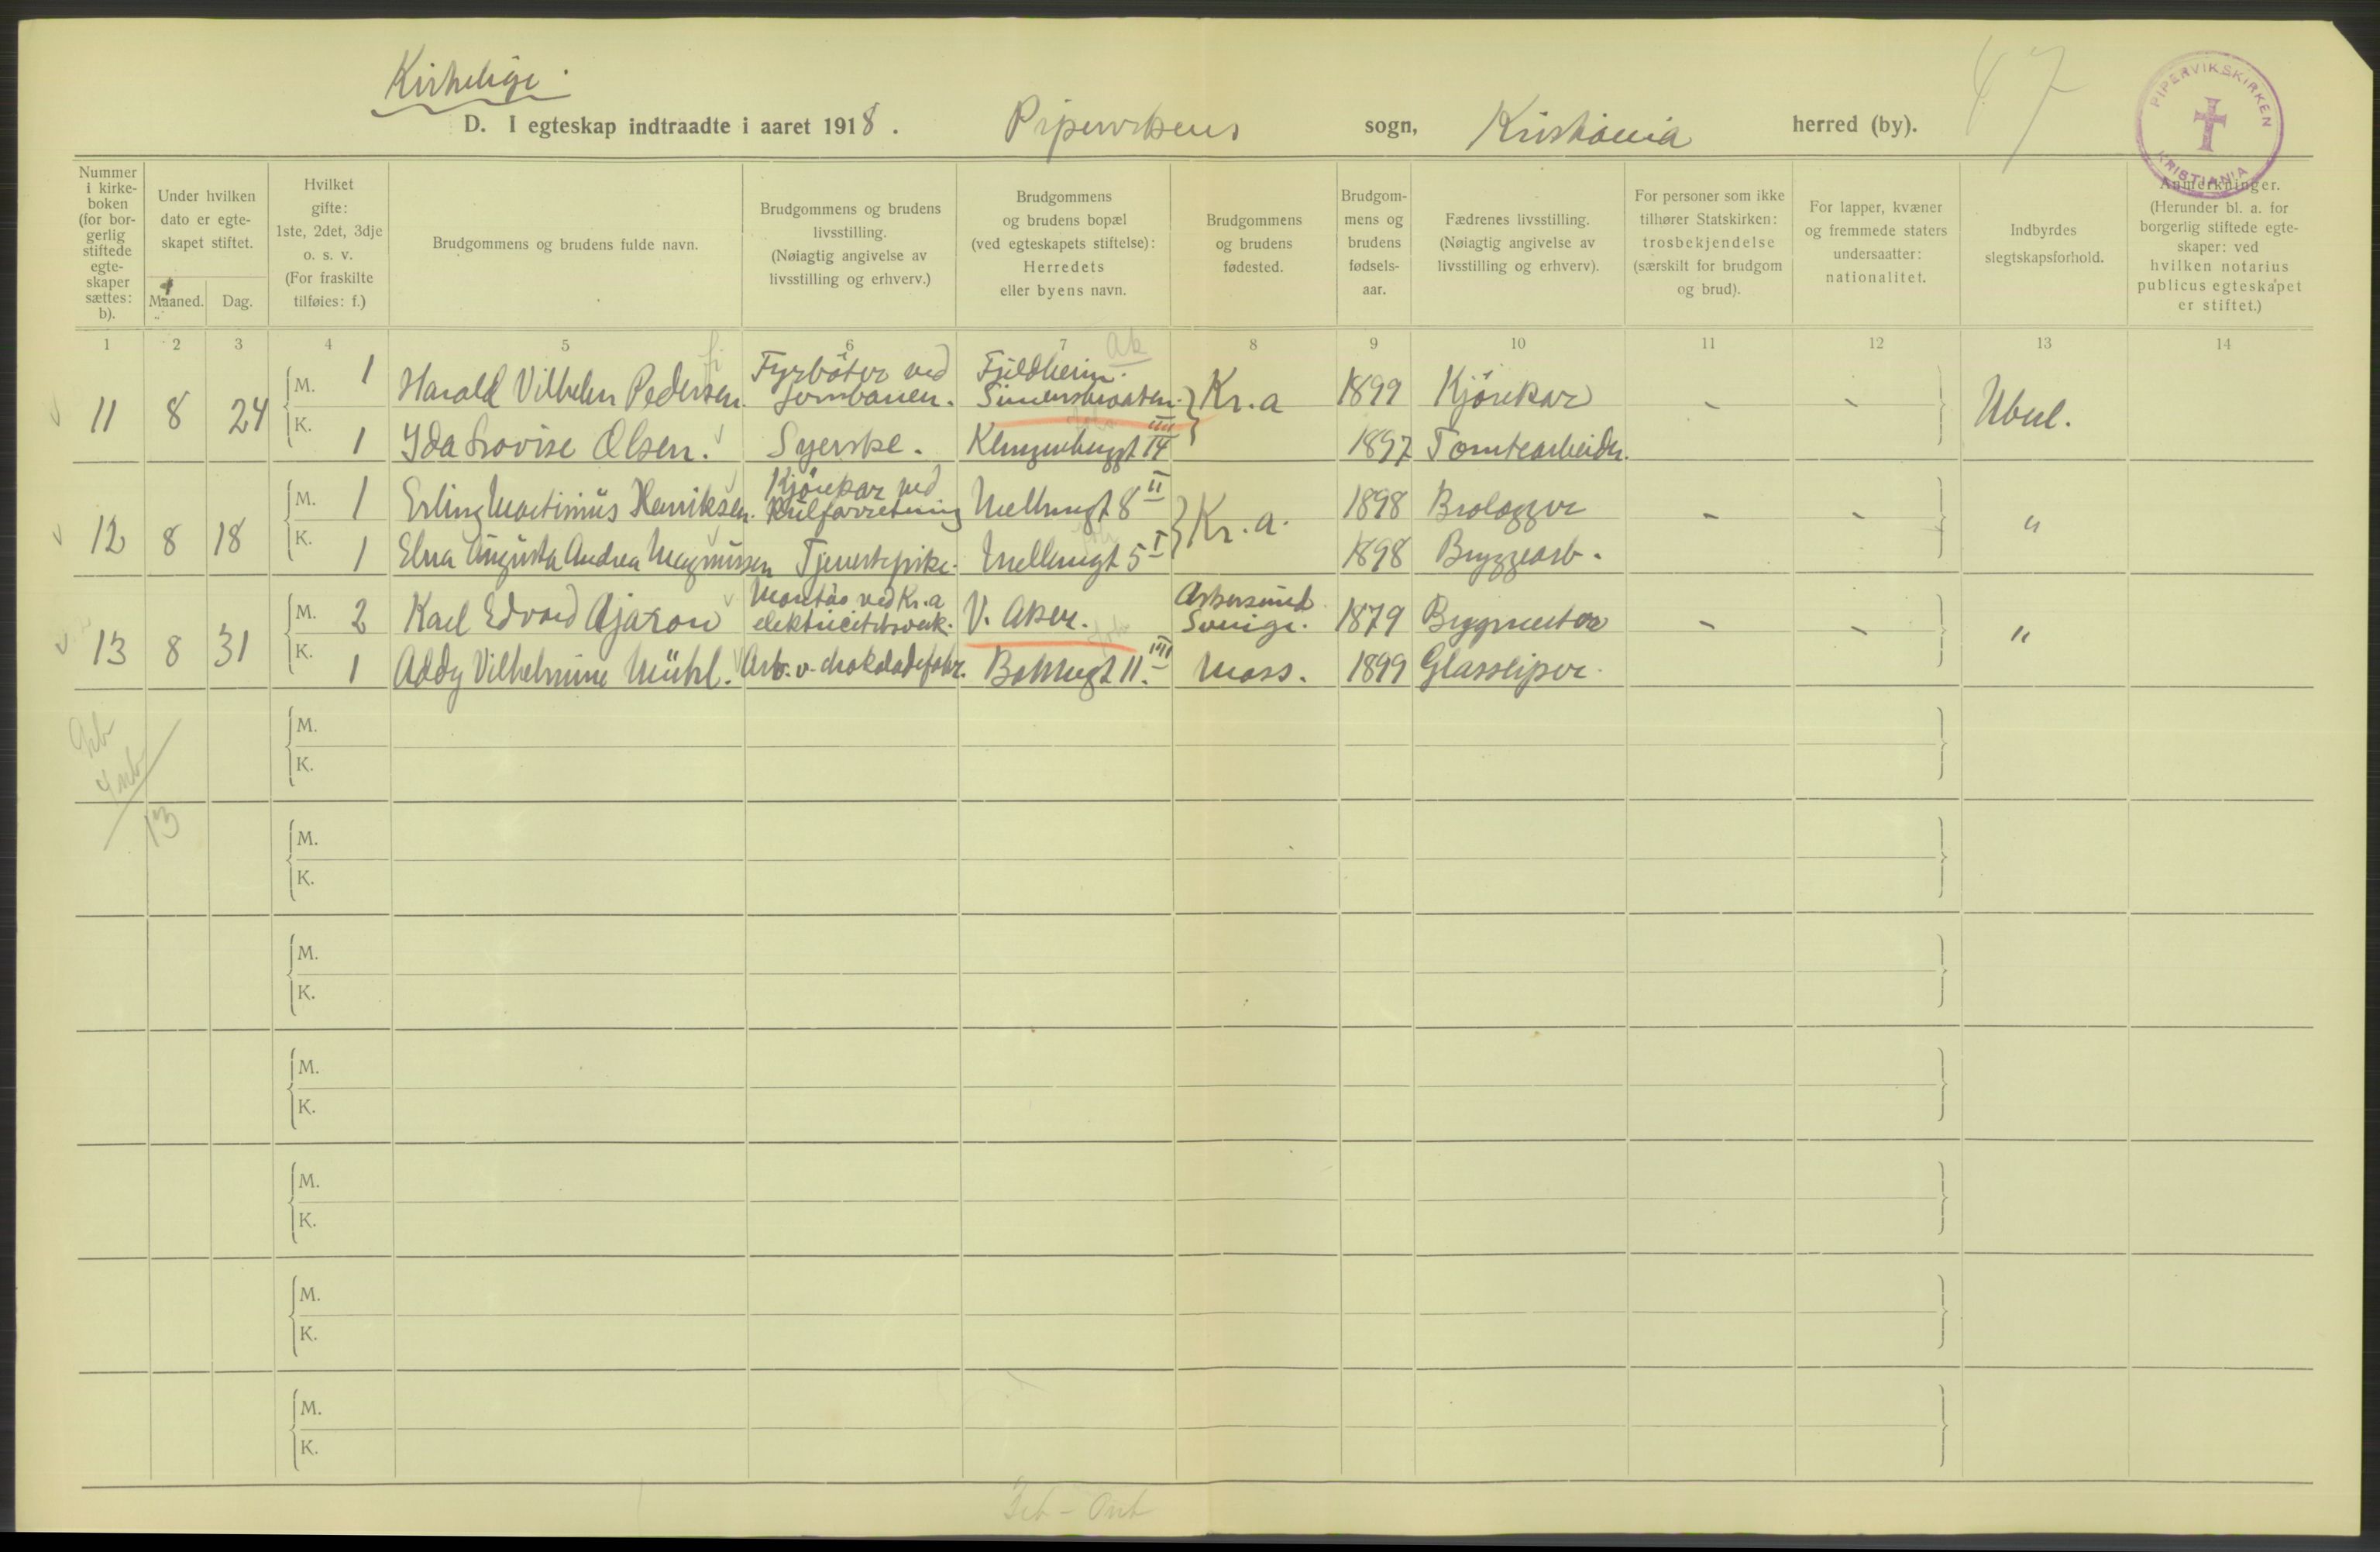 Kirkelige.
47
PIPERVIKSKIRKEN
KRISTIANIA
D. I egteskap indtraadte i aaret 1918. Pipervikens sogn, Kristiania herred (by).
Nummer i kirkeboken (for borgerlig stiftede egteskaper sættes: b).
Under hvilken dato er egteskapet stiftet.
Maaned. Dag.
Hvilket gifte: 1ste, 2det, 3dje o. s. v. (For fraskilte tilføies: f.)
Brudgommens og brudens fulde navn.
Brudgommens og brudens livsstilling. (Nøiagtig angivelse av livsstilling og erhverv.)
Brudgommens og brudens bopæl (ved egteskapets stiftelse): Herredets eller byens navn.
Brudgommens og brudens fødested.
Brudgommens og brudens fødselsaar.
Fædrenes livsstilling. (Nøiagtig angivelse av livsstilling og erhverv).
For personer som ikke tilhører Statskirken: trosbekjendelse (særskilt for brudgom og brud).
For lapper, kvæner og fremmede staters undersaatter: nationalitet.
Indbyrdes slegtskapsforhold.
Anmerkninger. (Herunder bl. a. for borgerlig stiftede egteskaper: ved hvilken notarius publicus egteskapet er stiftet.)
1 2 3 4 5 6 7 8 9 10 11 12 13 14
Ak
11 8 24 M. 1 Harald Vilhelm Pedersen. Fyrbøter ved Jernbanen. Fjeldheim. Simensbraaten. Kr.a 1899 Kjørekar - - Ubesl.
K. 1 Yda Lovise Olsen. Syerske. Klingenberggt 14 III 1897 Tomtearbeider.
12 8 18 M. 1 Erling Martinius Henriksen. Kjørekar ved kulforretning Mellemgt 8 II Kr.a. 1898 Brolægger - - "
K. 1 Elna Augusta Andrea Magnussen Tjenestepike. Mellemgt 5 I 1898 Bryggearb.
13 8 31 M. 2 Karl Edvard Ajaxon Montør ved Kr.a elektricitetsverk. V. Aker. Askersund Sverige. 1879 Bygmester - - "
K. 1 Addy Vilhelmine Mühl. Arb. v. chokoladefabr. Bakkegt 11. III Moss. 1899 Glassliper.
13
M.
K.
M.
K.
M.
K.
M.
K.
M.
K.
M.
K.
M.
K.